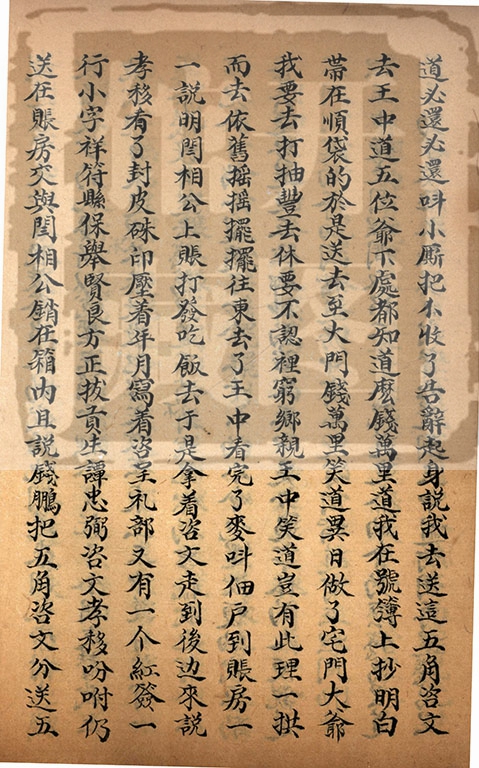 道必還必還叫小廝把不收了告辭起身說我去送這五角咨文
去王中道五位爺下處都知道麽錢萬里道我在號簿上抄明白
帶在順袋的於是送去至大門錢萬里笑道異日做了宅門大爺
我要去打抽豐去休要不認裡窮鄉親王中笑道豈有此理一拱
而去依舊搖搖擺擺往東去了王中看完了麥叫佃戶到賬房一
一說明閻相公上賬打發吃飯去于是拿着咨文走到後边來說
孝移看了封皮硃印壓着年月寫着咨呈礼部又有一个紅簽一
行小字祥符縣保舉賢良方正拔貢生譚忠弼咨文孝移吩咐仍
送在賬房交與閻相公鎖在箱內且說錢鵬把五角咨文分送五